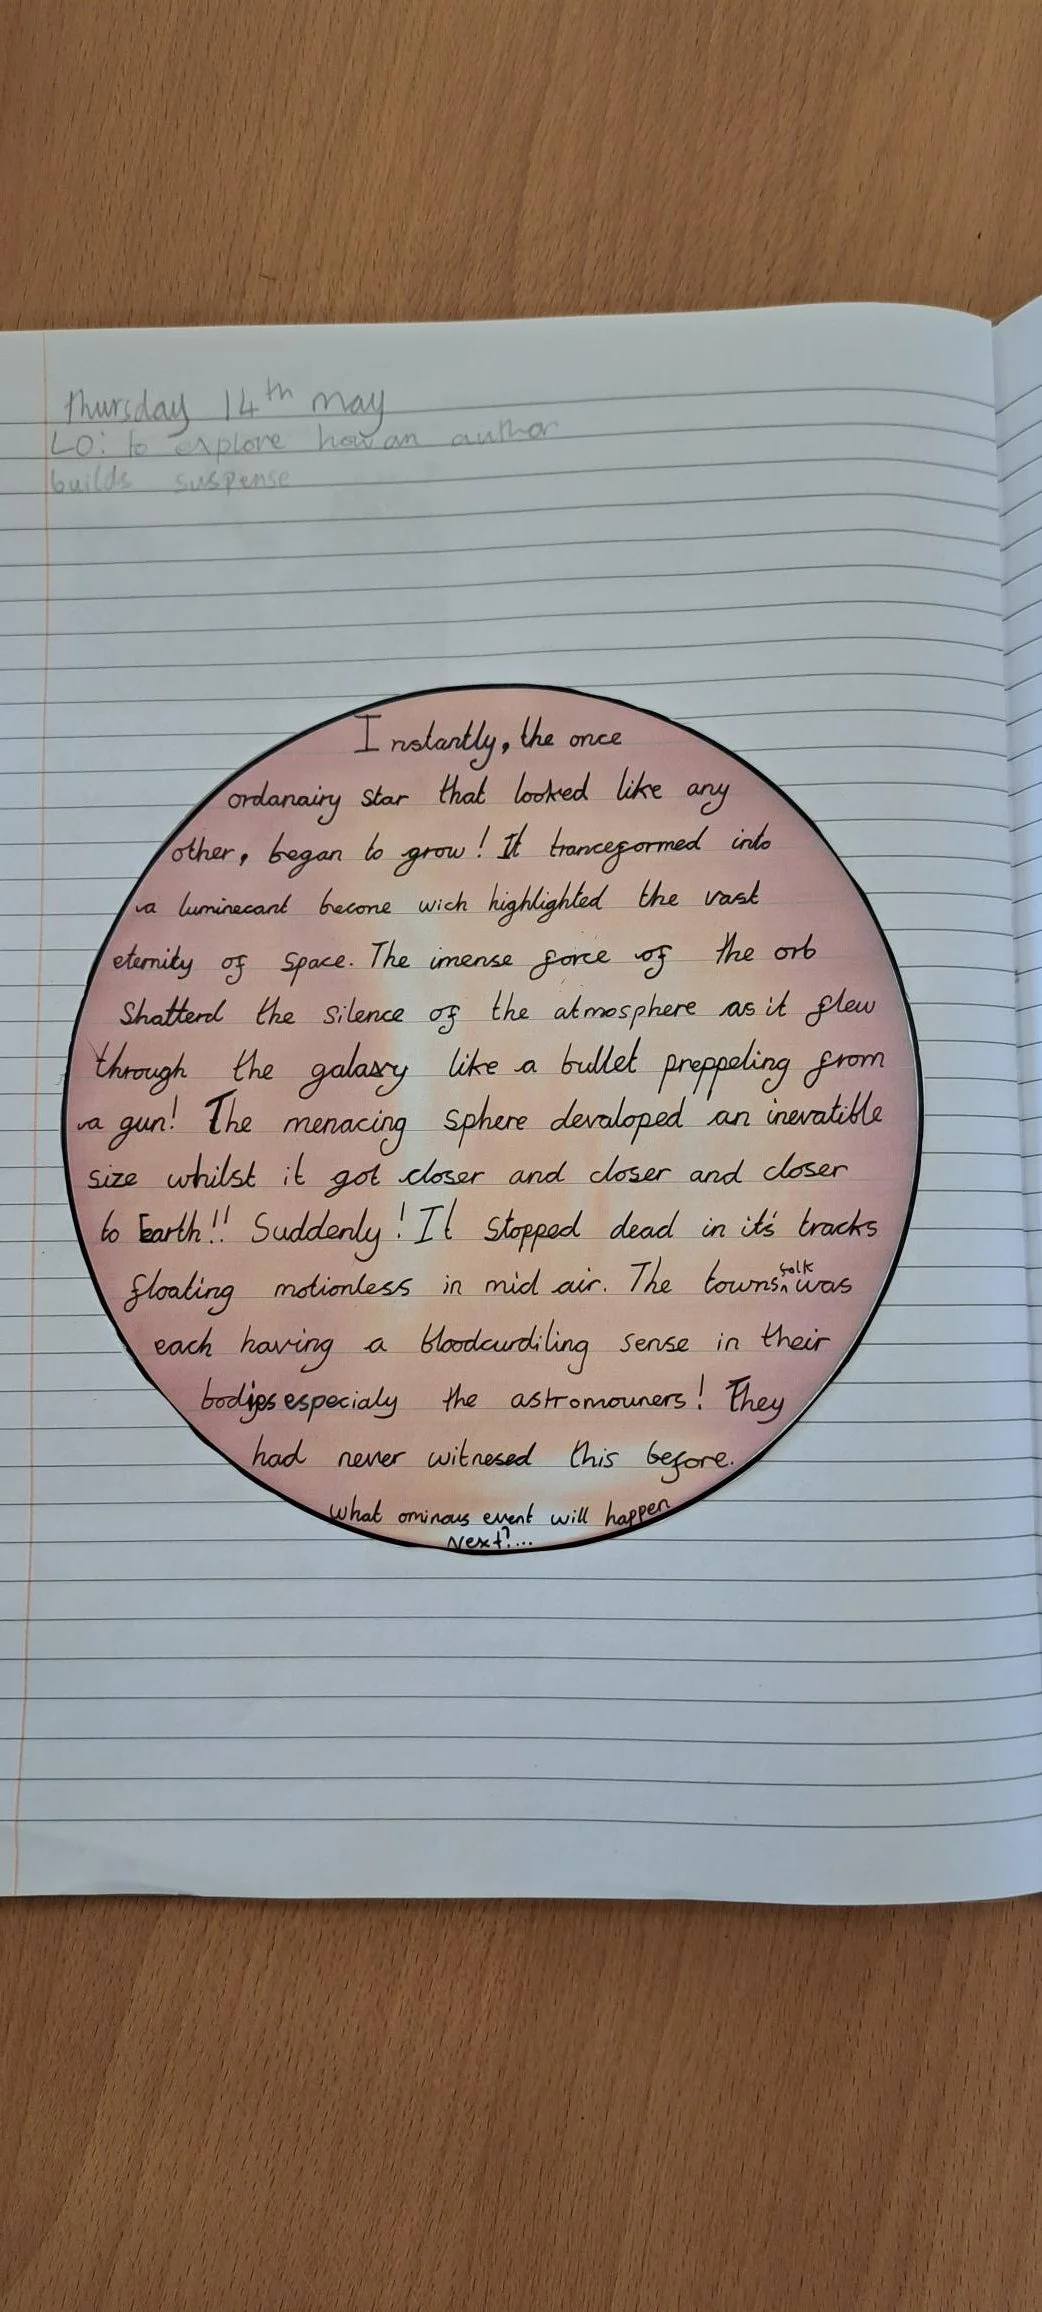 Thursday 14th may
LO: to explore how an author
builds suspense
Instantly, the once
ordanairy star that looked like any
other, began to grow! It tranceformed into
a luminecant becone wich highlighted the vast
eternity of space. The imense force of the orb
Shatterd the silence of the atmosphere as it flew
through the galaxy like a bullet preppeling from
a gun! The menacing sphere devaloped an inevatible
size whilst it got closer and closer and closer
to Earth!! Suddenly! It stopped dead in it's tracks
floating motionless in mid air. The townsfolk was
each having a bloodcurdiling sense in their
bodies especialy the astromouners! They
had never witnesed this before.
What ominous event will happen
Next?...